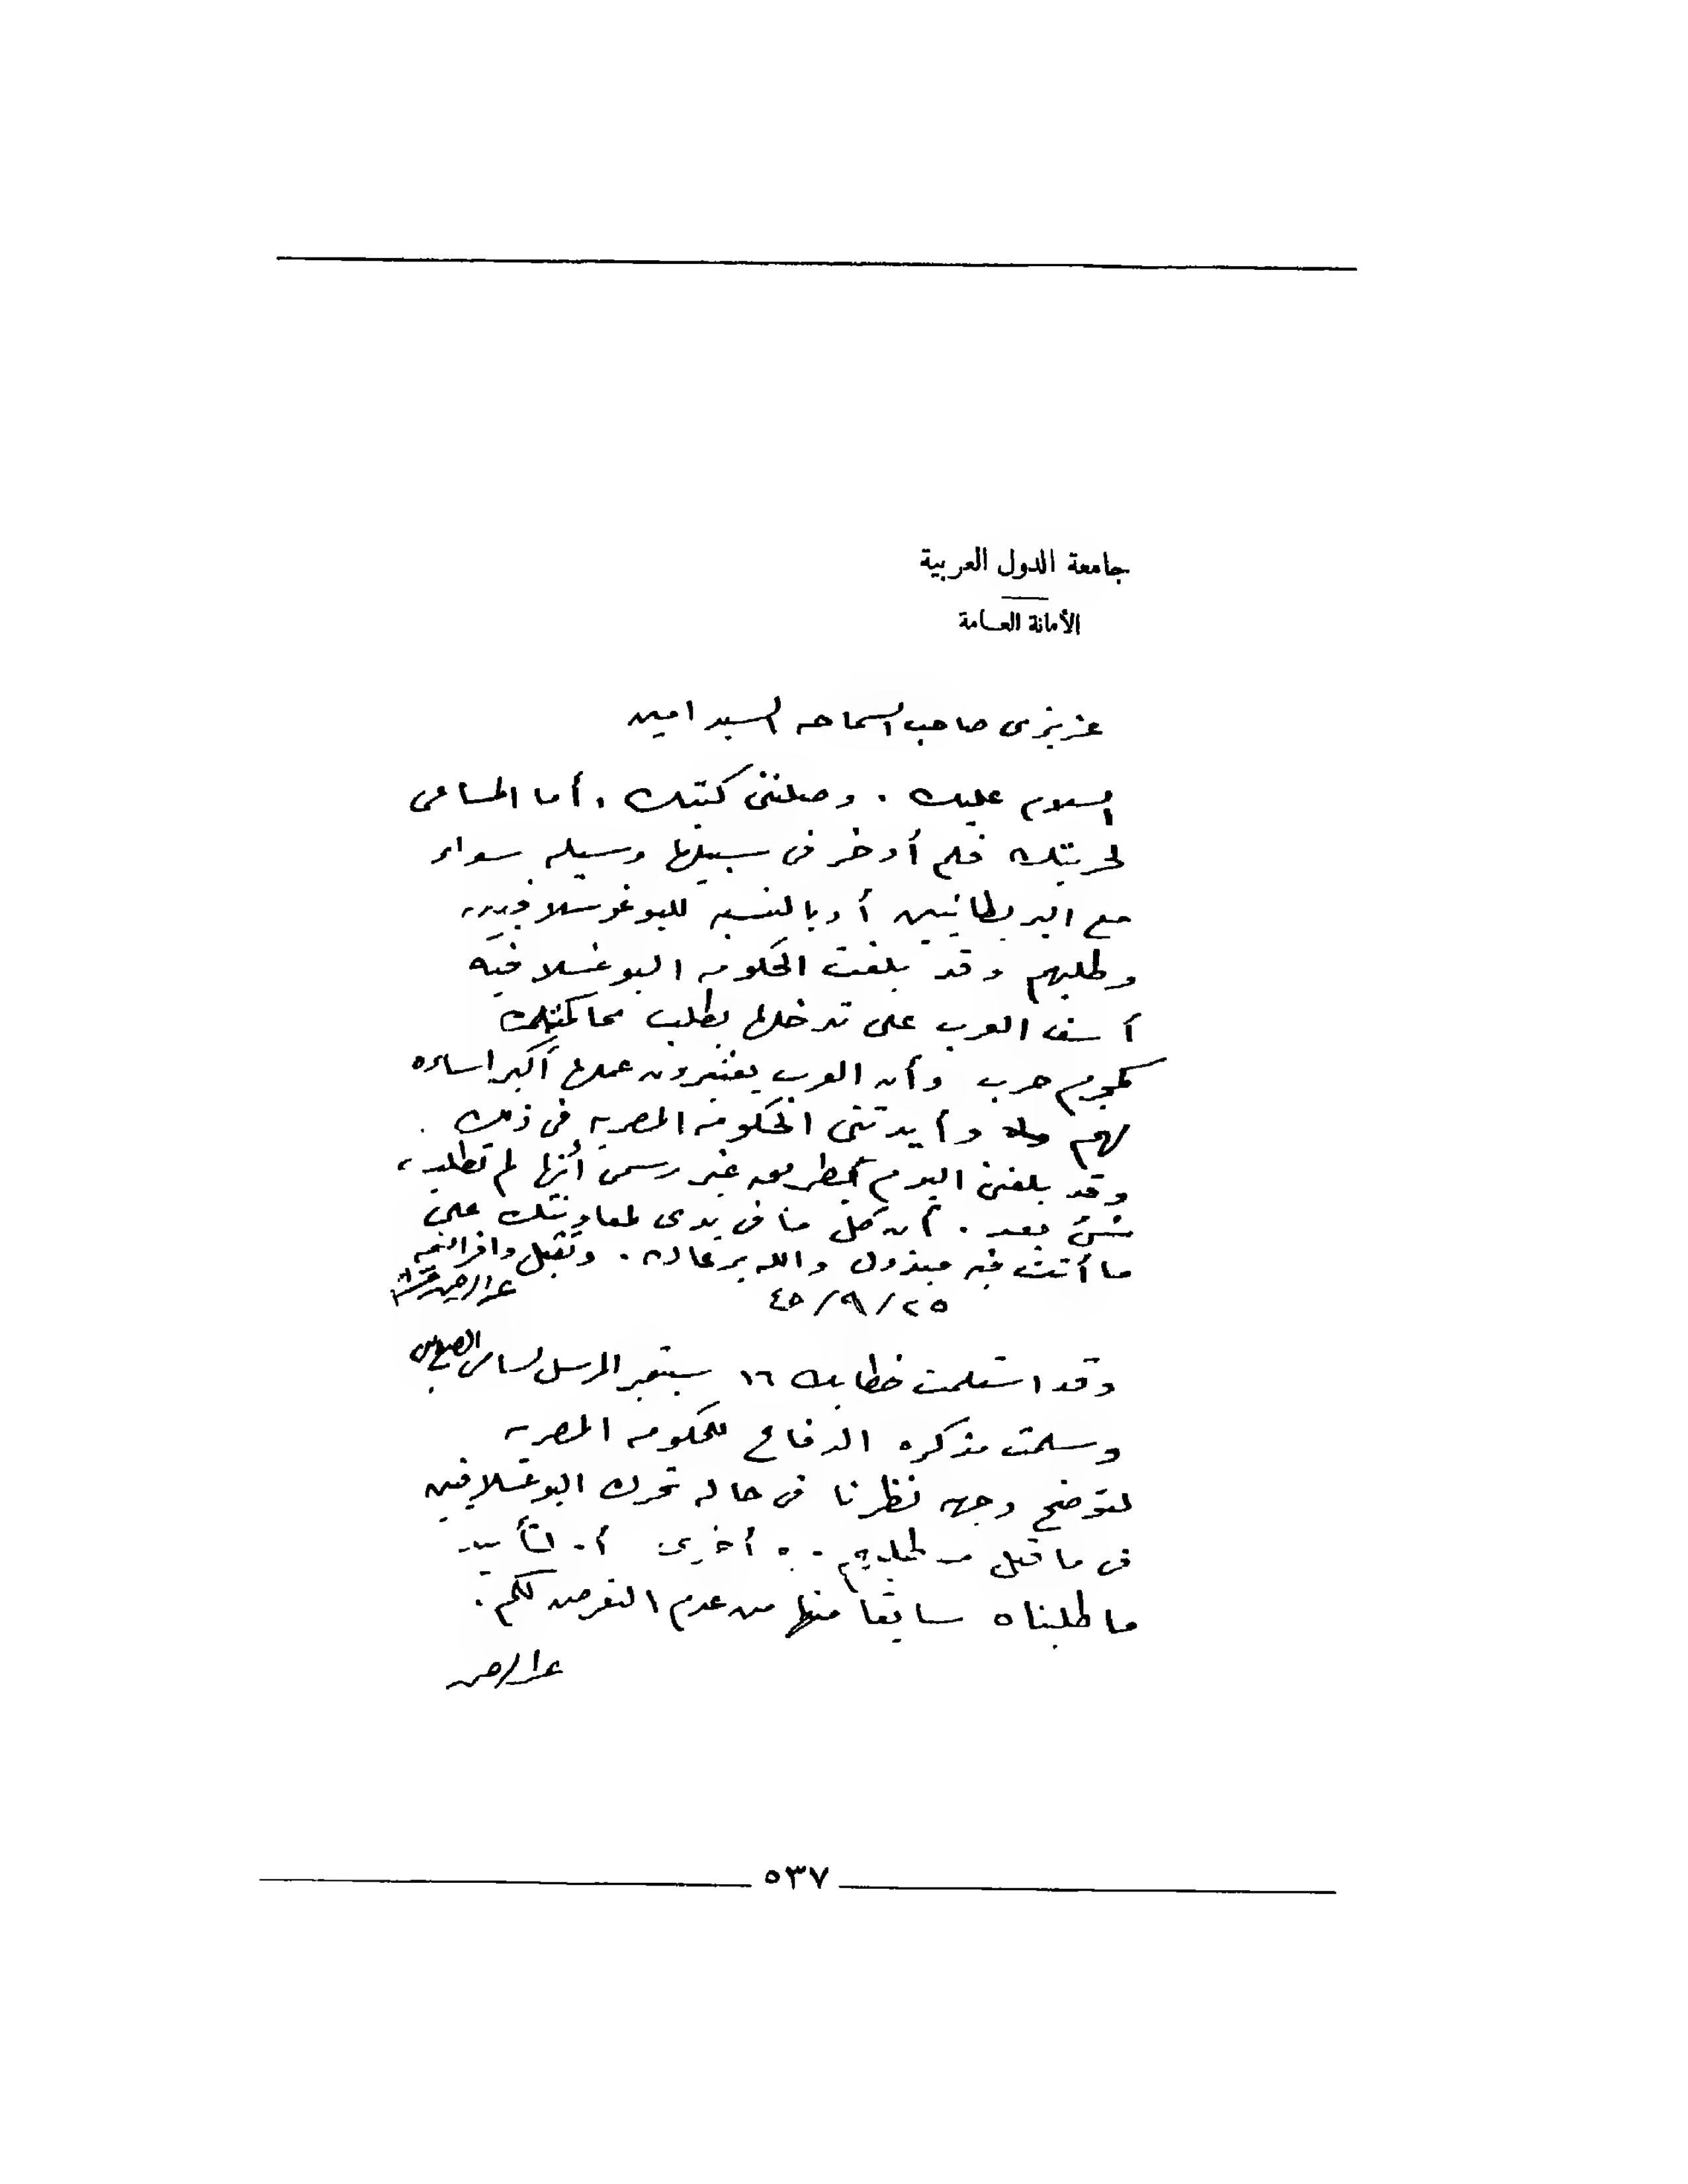 جامعة الدول العربية
الأمانة العامة
عزيزى صاحب السماحه السيد امين
السلام عليك . وصلتنى كتبك . أما المساعى
لحريتك فلم أدخر فى سبيلها وسيله سواء
مع البريطانيين أو بالنسبه لليوغوسلافيين
وطلبهم وقد بلغت الحكومه اليوغسلافيه
أسف العرب على تدخلها بطلب محاكمتك
كمجرم حرب وأن العرب يعتبرون عملها أكبر اساءه
لهم وأيدتنى الحكومه المصريه فى ذلك .
وقد بلغنى اليوم بطريق غير رسمى أنها لم تطلب
شئ بعد . أن كل ما فى يدى لمعاونتك على
ما أنت فيه مبذول والله يرعاك . وتقبل وافر التحيه
عبد الرحمن عزام
٢٥/٩/٤٥
وقد استلمت خطابك ١٦ سبتمبر المرسل لسامى الصلح
وسلمت مذكره الدفاع للحكومه المصريه
لتوضح وجهه نظرنا فى حاله تحرك اليوغسلافيين
فى ما قبل من طلبهم أخرى أو لتأييد
ما طلبناه سابقا منها من عدم التعرض لكم .
عبد الرحمن
٥٣٧